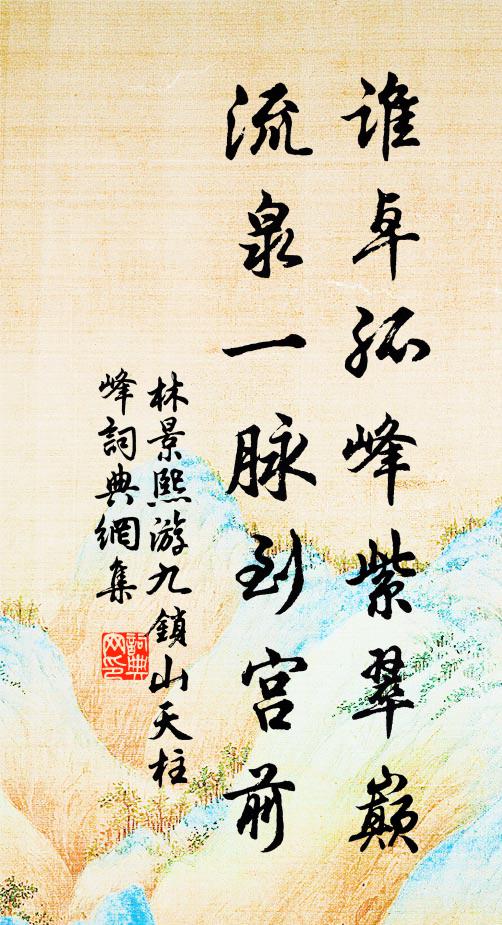 谁卓孤峰紫翠巅
流泉一脉到宫前
林景熙游九鎖山天柱
峰詞典網集
詞典网印